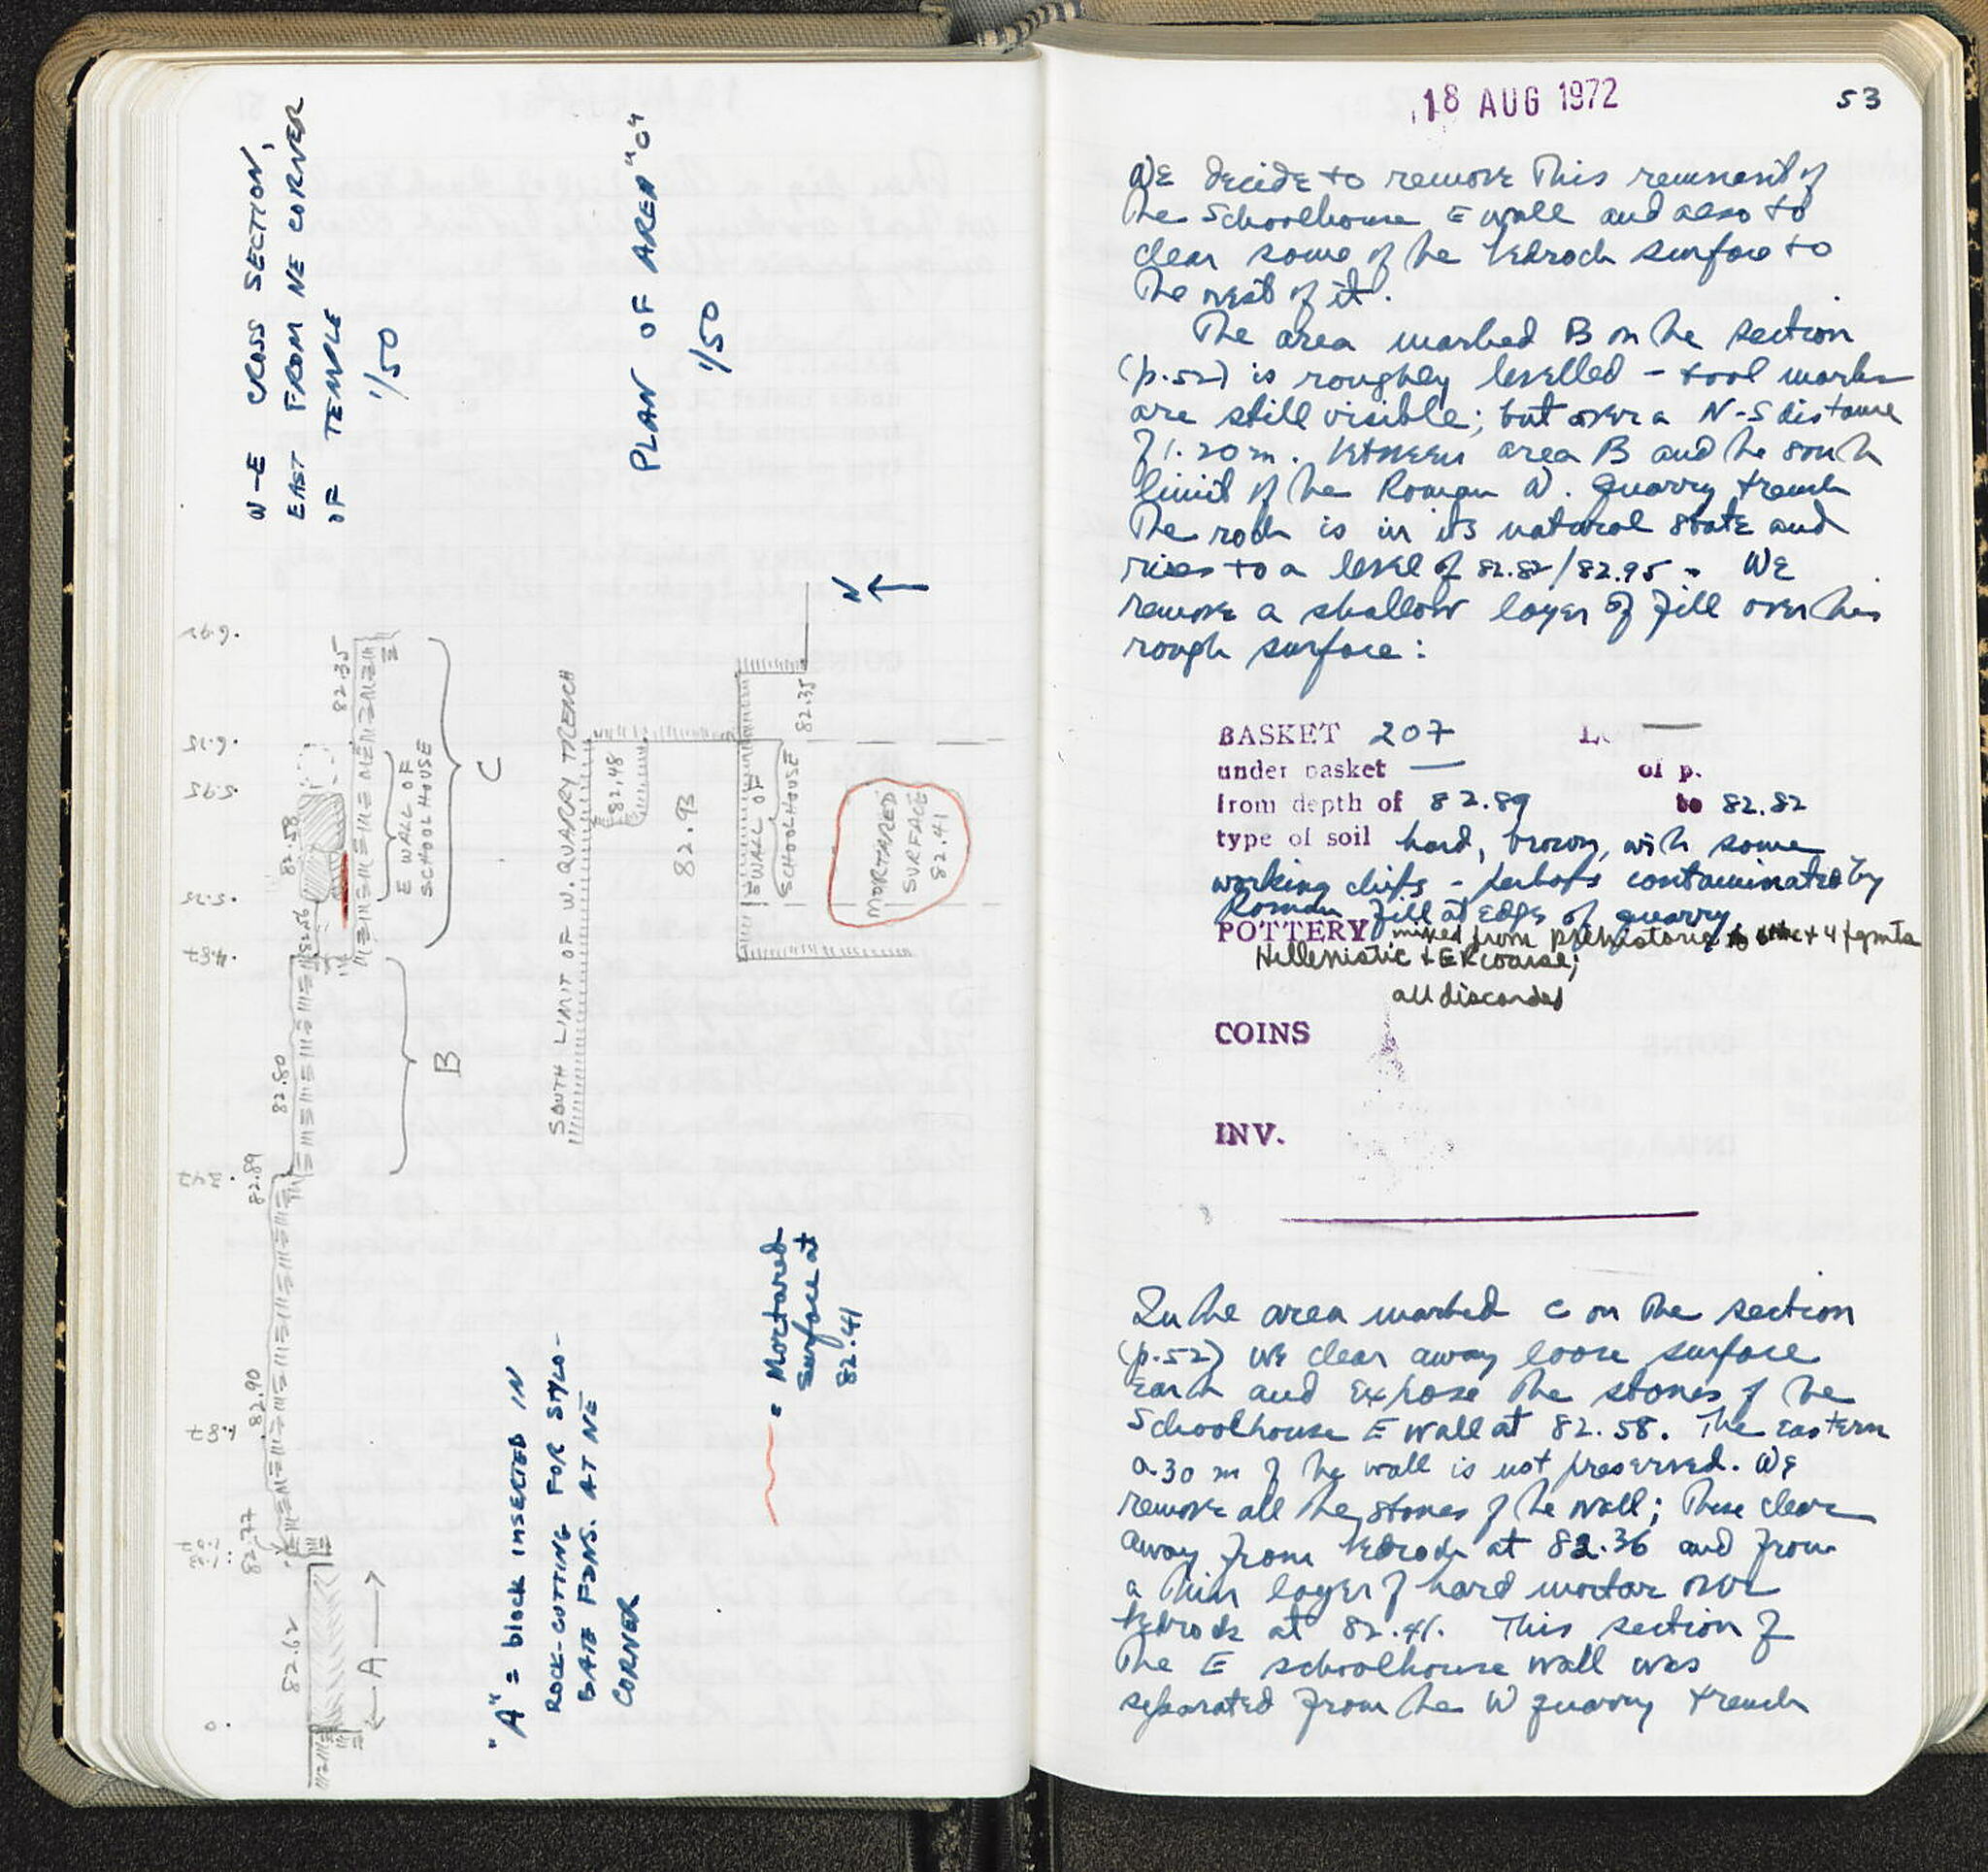 W-E CROSS SECTION,
EAST FROM NE CORNER
OF TEMPLE
1/50
PLAN OF AREA "C"
1/50
N
6.95
6.15
5.95
5.25
4.87
3.47
1.87
0
82.35
82.58
82.56
82.80
82.89
82.90
82.77
82.62
E WALL OF
SCHOOLHOUSE
C
B
A
SOUTH LIMIT OF W. QUARRY TRENCH
82.48
82.93
82.35
E WALL OF
SCHOOLHOUSE
MORTARED
SURFACE
82.41
"A" = block INSERTED IN
ROCK-CUTTING FOR STYLO-
BATE FDNS. AT NE
CORNER
= Mortared
surface at
82.41
18 AUG 1972
53
WE decide to remove This remnant of
The Schoolhouse E wall and also to
clear some of the bedrock surface to
The west of it.
The area marked B on the section
(p.52) is roughly levelled - tool marks
are still visible; but over a N-S distance
of 1.20 m. between area B and the south
limit of the Roman W. Quarry trench
The rock is in its natural state and
rises to a level of 82.82/82.95. WE
remove a shallow layer of fill over this
rough surface:
BASKET 207 LO —
under basket — of p.
from depth of 82.89 to 82.82
type of soil hard, brown, with some
working chips - perhaps contaminated by
Roman fill at edges of quarry
POTTERY mixed from prehistoric + 4 fgmts
Hellenistic + ER coarse;
all discarded
COINS
INV.
In the area marked C on The section
(p.52) we clear away loose surface
earth and expose The stones of the
Schoolhouse E wall at 82.58. The eastern
0.30 m of the wall is not preserved. WE
remove all the stones of the wall; These clear
away from bedrock at 82.36 and from
a thin layer of hard mortar over
bedrock at 82.41. This section of
The E schoolhouse wall was
separated from the W quarry trench